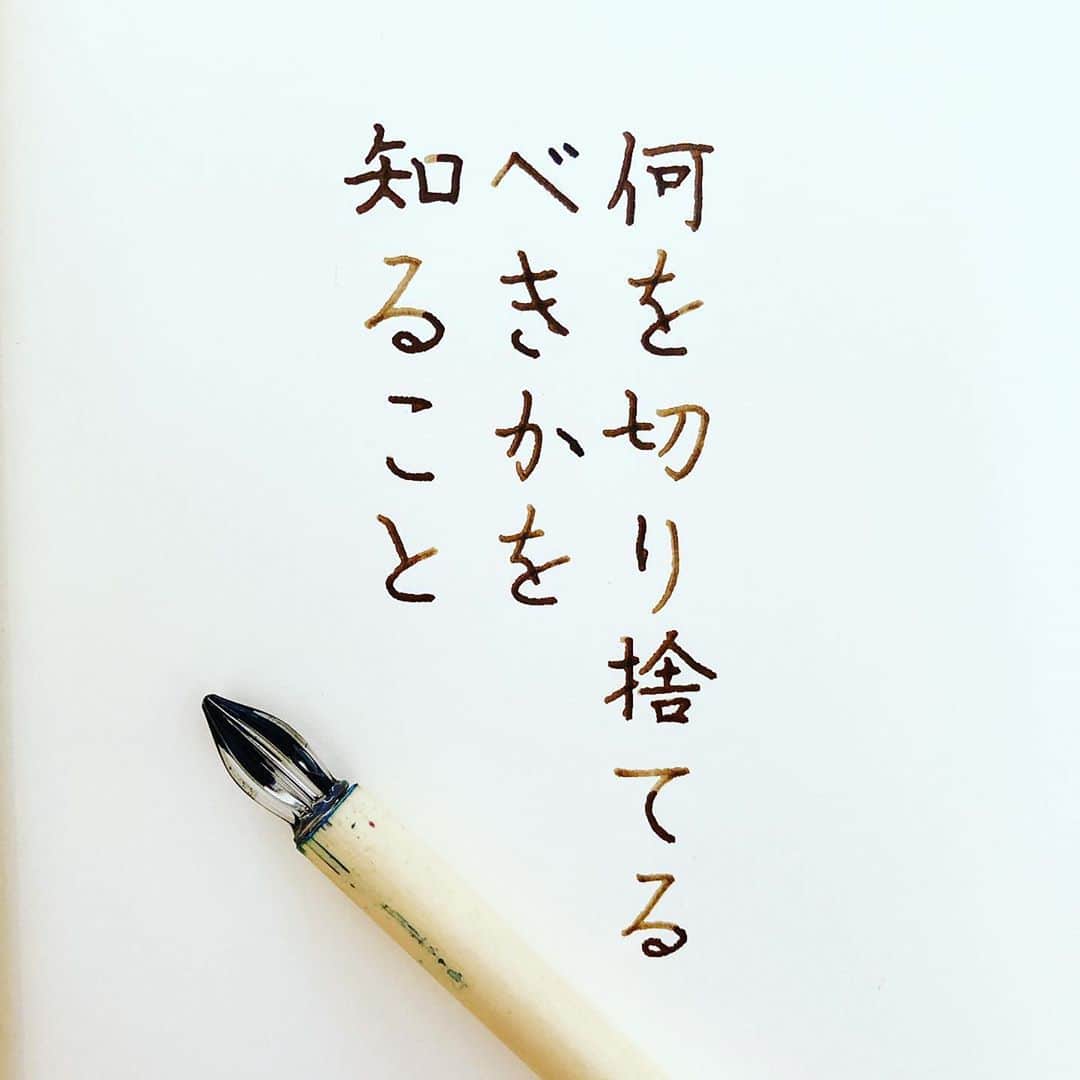 何を切り捨てる
べきかを
知ること